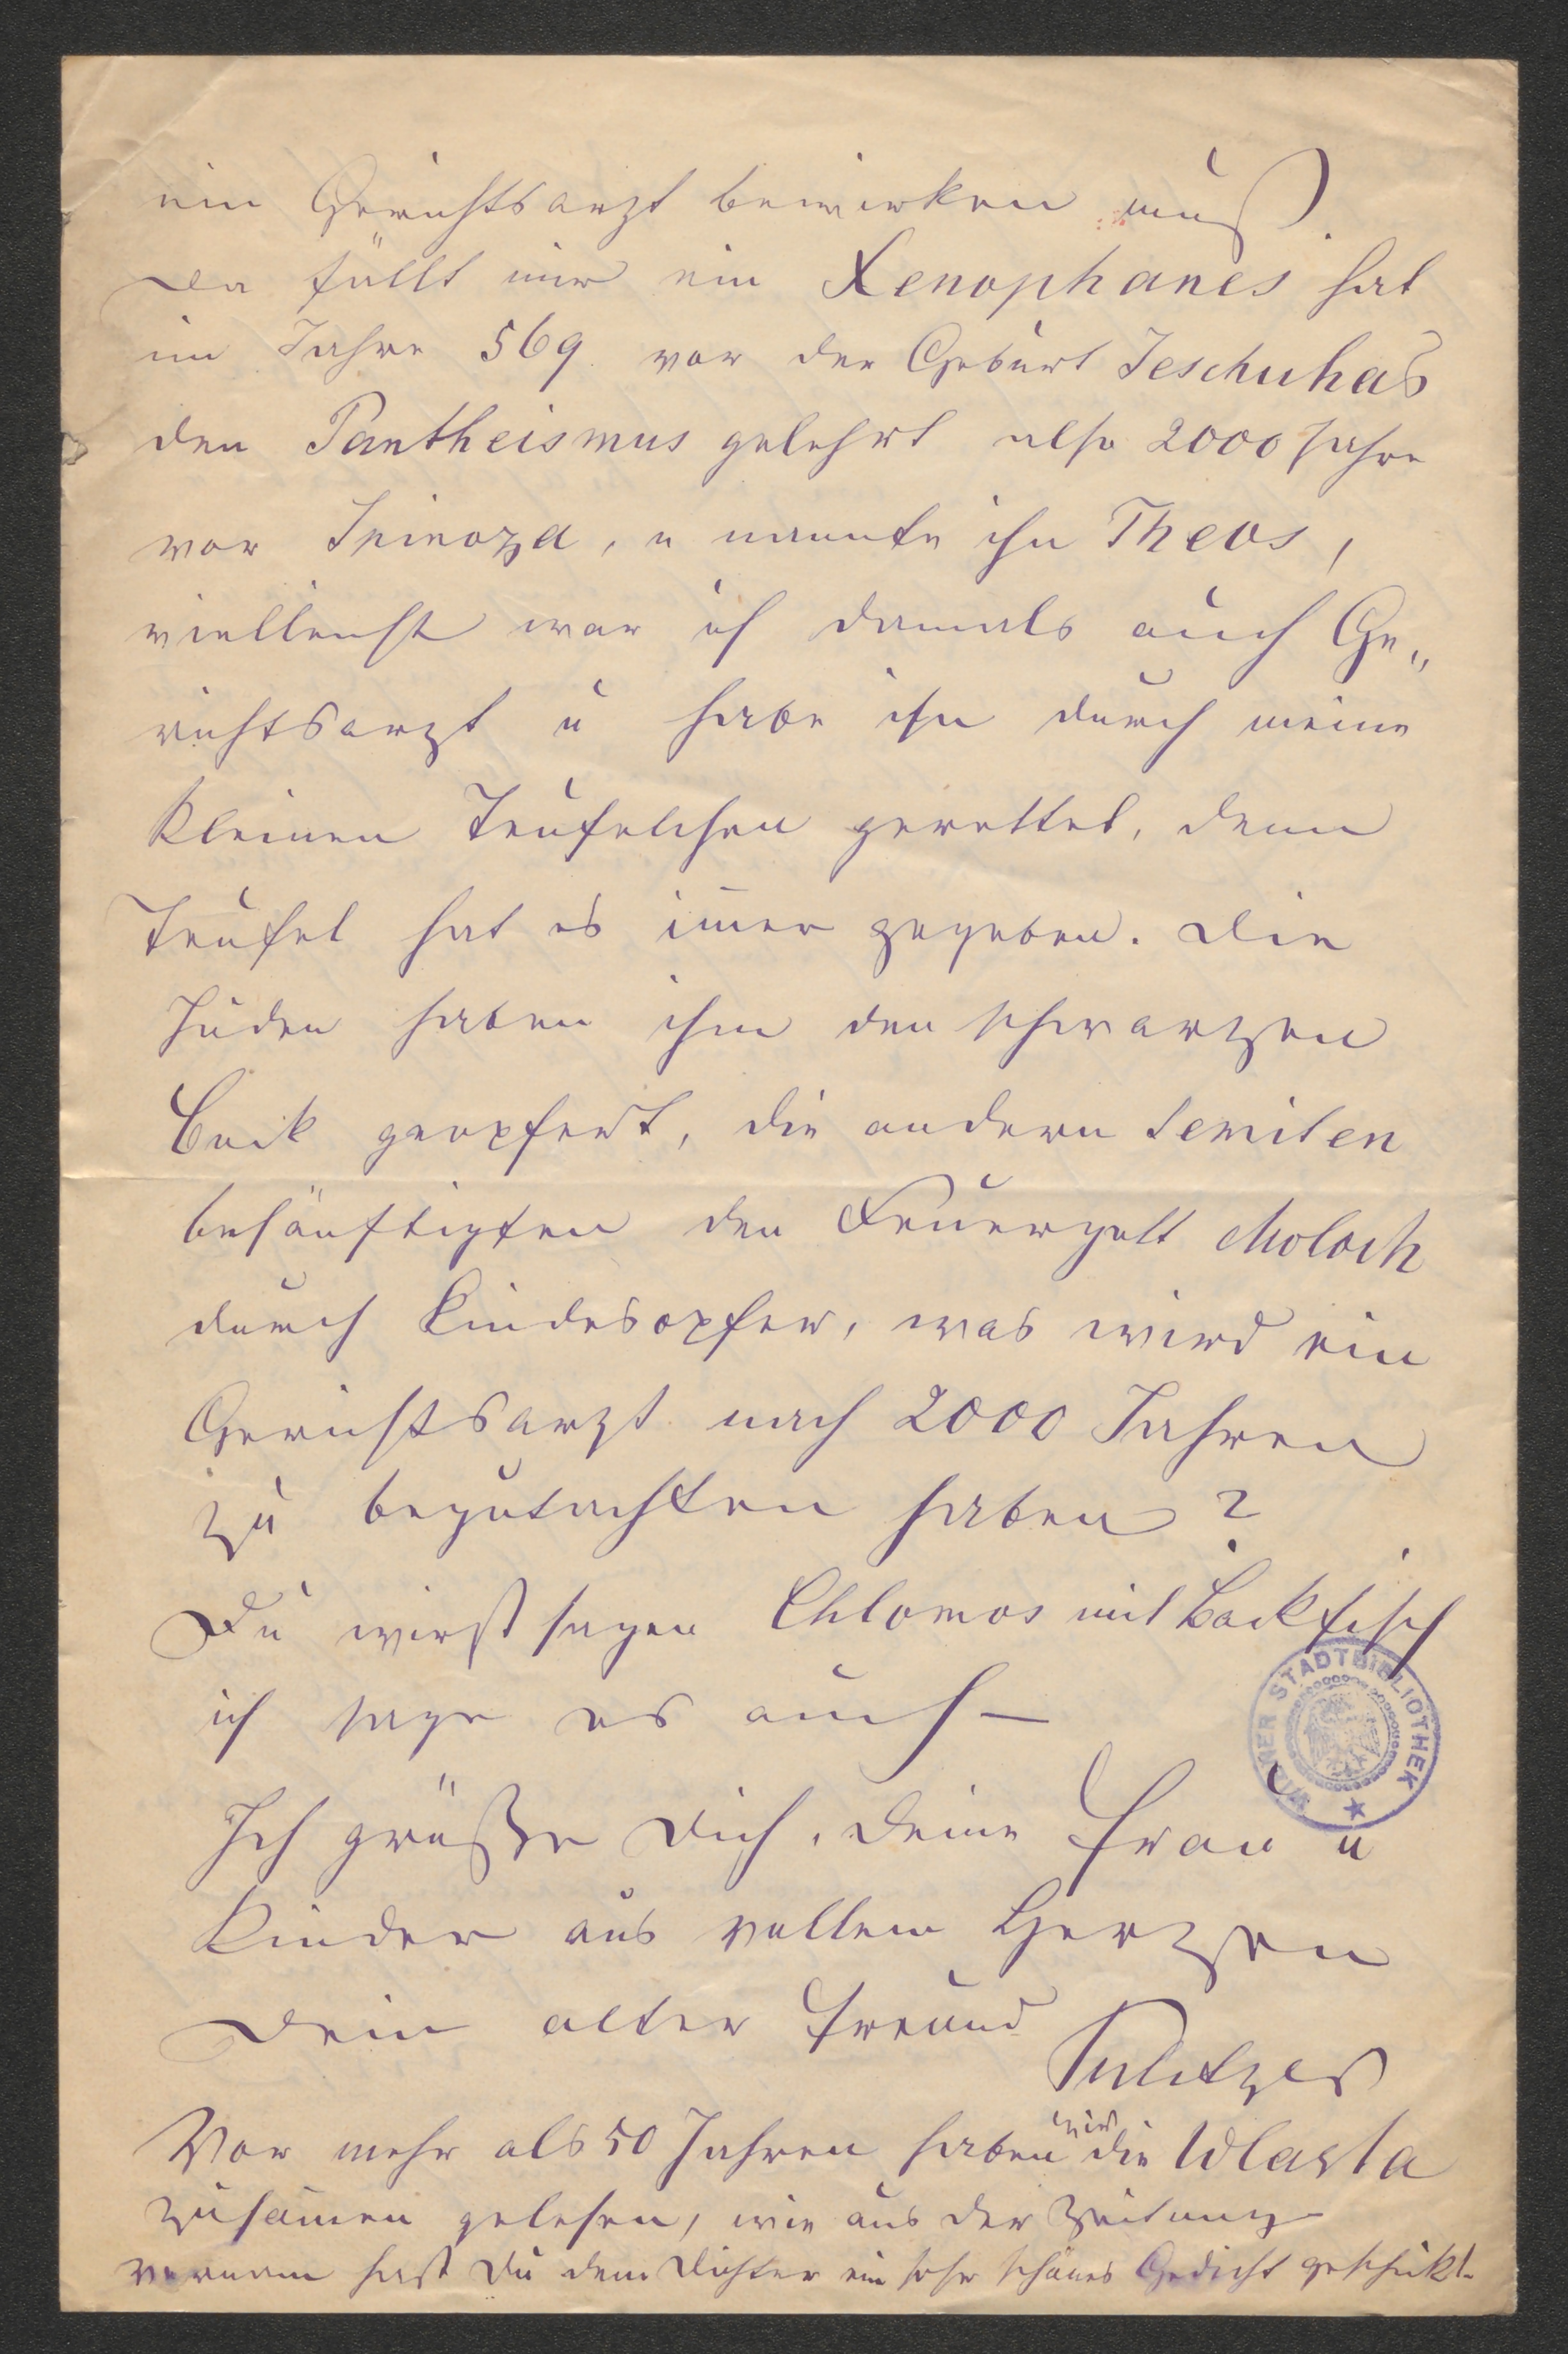 ein Gerichtsarzt bewirken muß.
Da fällt mir ein Xenophanes hat
im Jahre 569 vor der Geburt Jeschuhas
den Pantheismus gelehrt also 2000 Jahre
vor Spinoza, u nannte ihn Theos,
vielleicht war ich damals auch Ge„
richtsarzt u habe ihn durch meine
kleinen Teufelchen gerettet, denn
Teufel hat es im̄er gegeben. Die
Juden haben ihm den schwarzen
Bock geopfert, die andern Semiten
besänftigten den Feuergott Moloch
durch Kindesopfer, was wird ein
Gerichtsarzt nach 2000 Jahren
zu begutachten haben?
Du wirst sagen Chlomos mit Backfisch
ich sage es auch —
WIENER STADTBIBLIOTHEK
Ich grüße Dich, Deine Frau u
Kinder aus vollem Herzen
Dein alter Freund
Pulitzer
Vor mehr als 50 Jahren haben wir die Wlasta
zusam̄en gelesen, wie aus der Zeitung
vernom hast Du dem Dichter ein sehr schönes Gedicht geschickt.